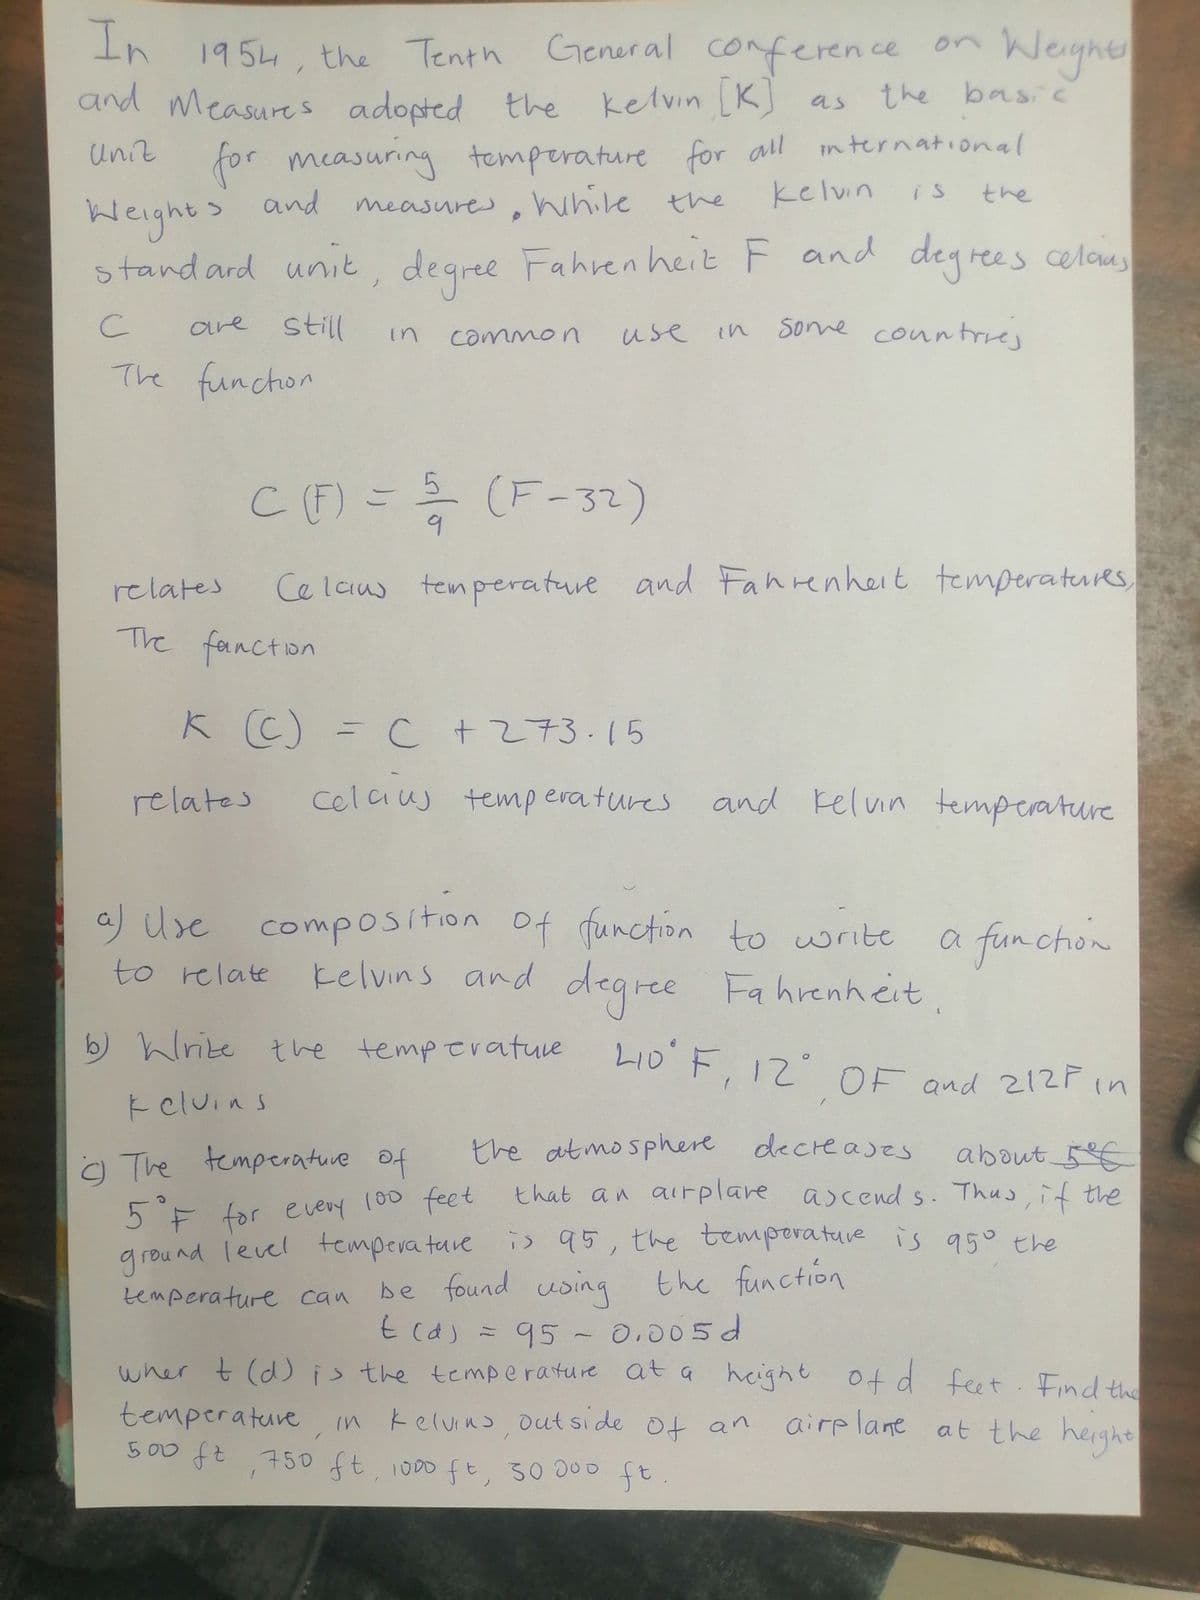 In 1954, the Tenth General conference on Weights
and Measures adopted the kelvin [K] as the basic
unit for measuring temperature for all international
Weights and measures. While the kelvin is the
standard unit, degree Fahrenheit F and degrees celcius
C are still in common use in some countries
The function
C (F) = 5/9 (F-32)
relates Celcius temperature and Fahrenheit temperatures,
The function
K (C) = C + 273.15
relates celcius temperatures and kelvin temperature
a) Use composition of function to write a function
to relate kelvins and degree Fahrenheit.
b) Write the temperature 40° F, 12°, OF and 212F in
Kelvins
c) The temperature of the atmosphere decreases about 5°C
5°F for every 100 feet that an airplane ascends. Thus, if the
ground level temperature is 95, the temperature is 95° the
temperature can be found using the function
t (d) = 95 - 0.005d
wher t (d) is the temperature at a height of d feet. Find the
temperature, in kelvins, outside of an airplane at the height
500 ft, 750 ft, 1000 ft, 30 000 ft.